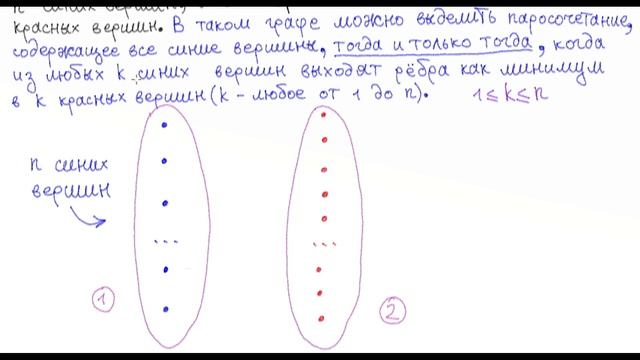 n синих вершин
красных вершин. В таком графе можно выделить паросочетание,
содержащее все синие вершины, тогда и только тогда, когда
из любых k синих вершин выходят рёбра как минимум
в k красных вершин (k - любое от 1 до n). 1 ≤ k ≤ n
n синих
вершин
...
...
1
2